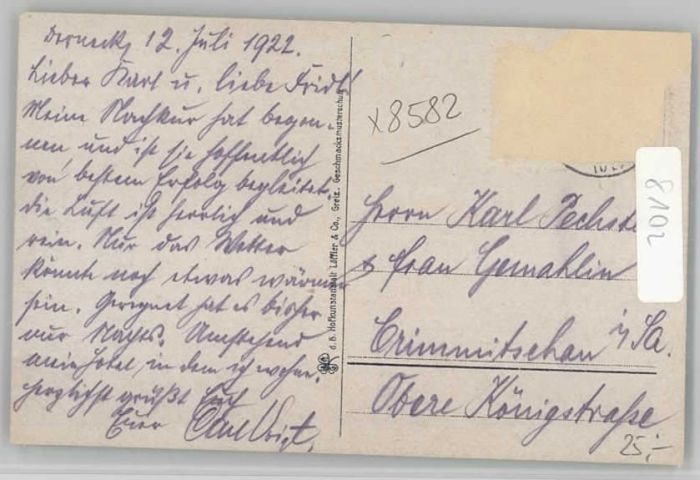 Derneck, 12. Juli 1922.
Lieber Kart u. liebe Fridl!
Meine Nachkur hat begon-
nen und ist sie hoffentlich
von bestem Erfolg begleitet.
Die Luft ist herrlich und
rein. Nur das Wetter
könnte noch etwas wärmer
sein. Geregnet hat es bisher
nur Nachts. Umstehend
mein Hotel, in dem ich wohne.
Herzlichst grüßt Euch
Euer
d. B. Hofkunstanstalt Löffler & Co., Greiz. Geschmacksmusterschutz
x8582
2018
Herrn Karl Pechste
& Frau Gemahlin
Crimmitschau i/Sa.
Obere Königstraße
25,-